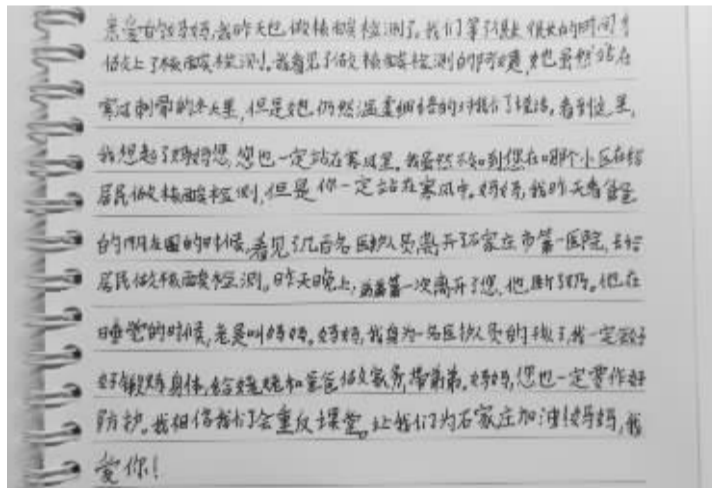 亲爱的妈妈,我昨天也做核酸检测了,我们等了很久很长的时间才
做上了核酸检测。我看见了做核酸检测的阿姨,她虽然站在
寒风刺骨的冬天里,但是她仍然温柔细语的对我们说话。看到这里,
我想起了妈妈您,您也一定站在寒风里。我虽然不知到您在哪个小区在给
居民做核酸检测,但是你一定站在寒风中。妈妈,我昨天看爸爸
的朋友圈的时候,看见了几百名医护人员离开了石家庄市第一医院,去给
居民做核酸检测。昨天晚上,弟弟第一次离开了您,他断了奶。他在
睡觉的时候,老是叫妈妈。妈妈,我身为一名医护人员的孩子,我一定会好
好锻炼身体,给姥姥和爸爸做家务,带弟弟。妈妈,您也一定要作好
防护。我相信我们会重反课堂。让我们为石家庄加油!妈妈,我
爱你!